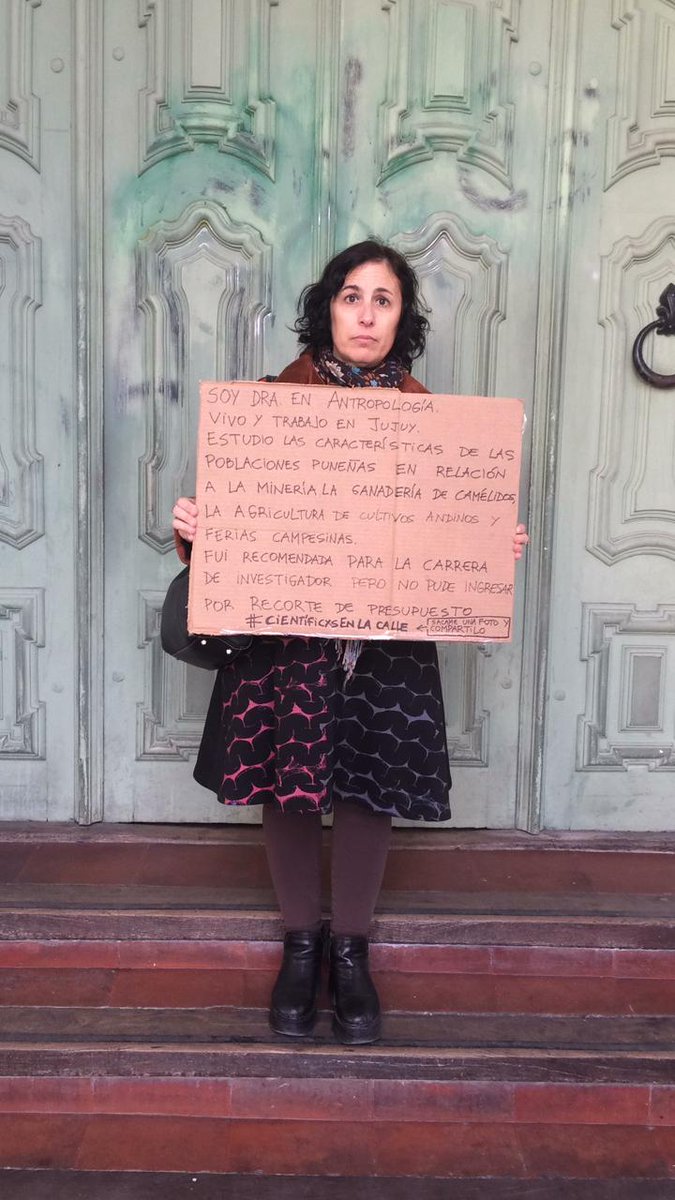 SOY DRA. EN ANTROPOLOGÍA.
VIVO Y TRABAJO EN JUJUY.
ESTUDIO LAS CARACTERÍSTICAS DE LAS
POBLACIONES PUNEÑAS EN RELACIÓN
A LA MINERÍA, LA GANADERÍA DE CAMÉLIDOS,
LA AGRICULTURA DE CULTIVOS ANDINOS Y
FERIAS CAMPESINAS.
FUÍ RECOMENDADA PARA LA CARRERA
DE INVESTIGADOR PERO NO PUDE INGRESAR
POR RECORTE DE PRESUPUESTO
#CIENTÍFICXSENLA CALLE ← SACAME UNA FOTO Y
COMPARTILO